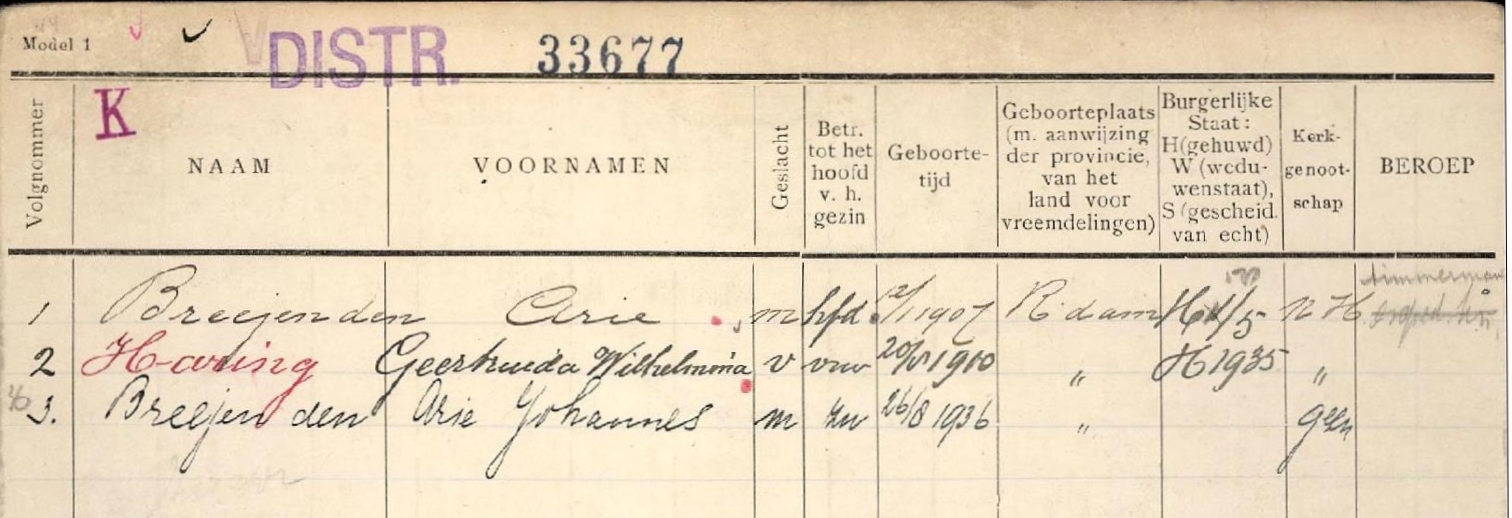 Model 1 DISTR. 33677
K
Volgnommer NAAM VOORNAMEN Geslacht Betr. tot het hoofd v. h. gezin Geboorte-tijd Geboorteplaats (m. aanwijzing der provincie, van het land voor vreemdelingen) Burgerlijke Staat: H(gehuwd) W (wedu-wenstaat), S (gescheid. van echt) Kerk-genoot-schap BEROEP
timmerman
1 Breejen den Arie m hfd 12/1 1907 R'dam H /5 N H
2 Haring Geertruida Wilhelmina v vrw 1910 „ H 1935 „
3. Breejen den Arie Johannes m zn 26/8 1936 „ geen